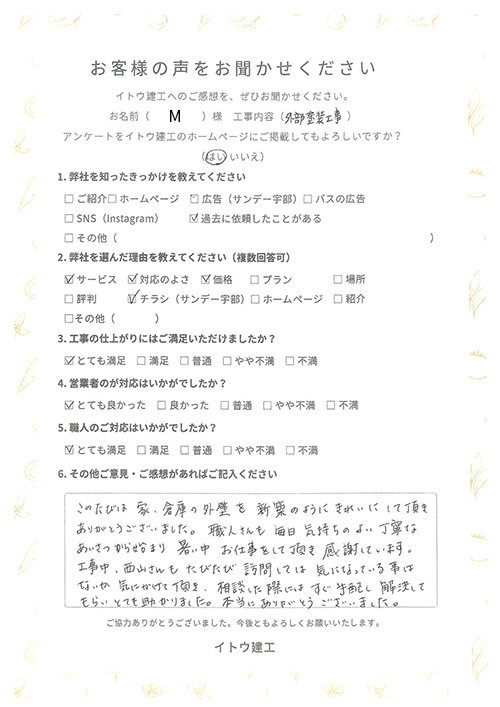 お客様の声をお聞かせください
イトウ建工へのご感想を、ぜひお聞かせください。
お名前（ M ）様 工事内容（外部塗装工事）
アンケートをイトウ建工のホームページにご掲載してもよろしいですか？
（はい いいえ）
1. 弊社を知ったきっかけを教えてください
□ご紹介□ホームページ □広告（サンデー宇部）□バスの広告
□SNS（Instagram） ☑過去に依頼したことがある
□その他（ ）
2. 弊社を選んだ理由を教えてください（複数回答可）
☑サービス ☑対応のよさ ☑価格 □プラン □場所
□評判 ☑チラシ（サンデー宇部）□ホームページ □紹介
□その他（ ）
3. 工事の仕上がりにはご満足いただけましたか？
☑とても満足 □満足 □普通 □やや不満 □不満
4. 営業者のが対応はいかがでしたか？
☑とても良かった □良かった □普通 □やや不満 □不満
5. 職人のご対応はいかがでしたか？
☑とても満足 □満足 □普通 □やや不満 □不満
6. その他ご意見・ご感想があればご記入ください
このたびは 家、倉庫の外壁を 新築のようにきれいにして頂き
ありがとうございました。職人さんも 毎日 気持ちのよい丁寧な
あいさつから始まり 暑い中 お仕事をして頂き 感謝しています。
工事中、西山さんも たびたび 訪問しては 気になっている事は
ないか 気にかけて頂き、相談した際には すぐ手配し 解決して
もらいとても助かりました。本当にありがとうございました。
ご協力ありがとうございました。今後ともよろしくお願いいたします。
イトウ建工